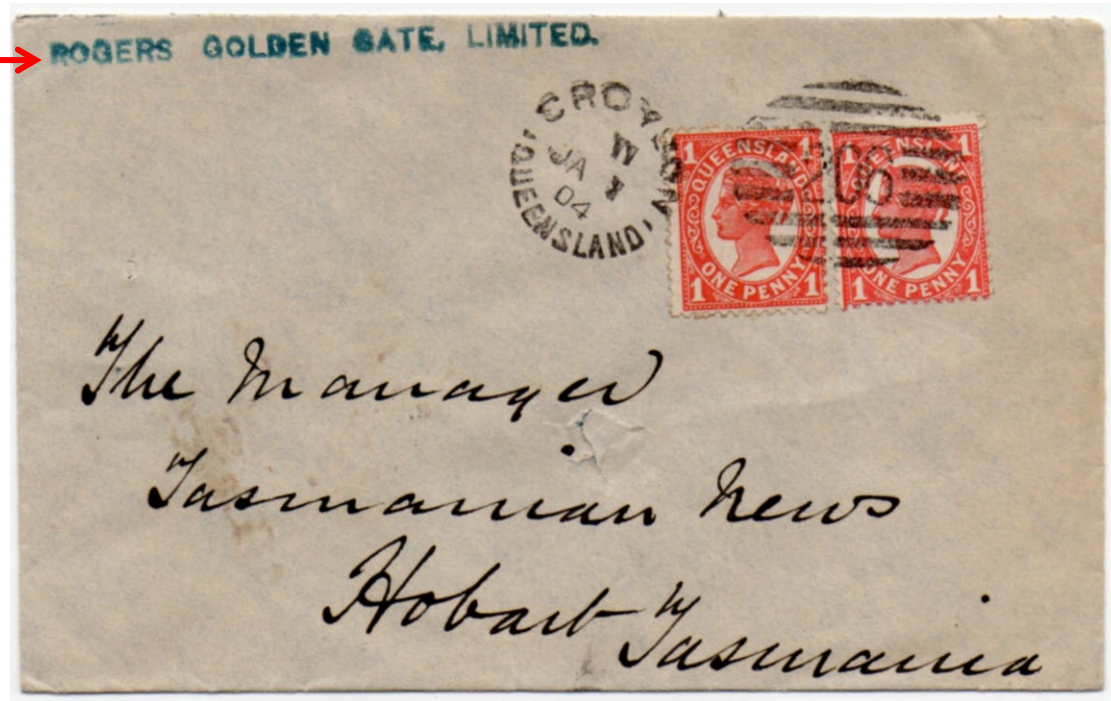 ROGERS GOLDEN GATE, LIMITED.
CROYDON
W
JA
04
QUEENSLAND
206
1 QUEENSLAND 1
1 ONE PENNY 1
1 QUEENSLAND 1
1 ONE PENNY 1
The Manager
Tasmanian News
Hobart Tasmania